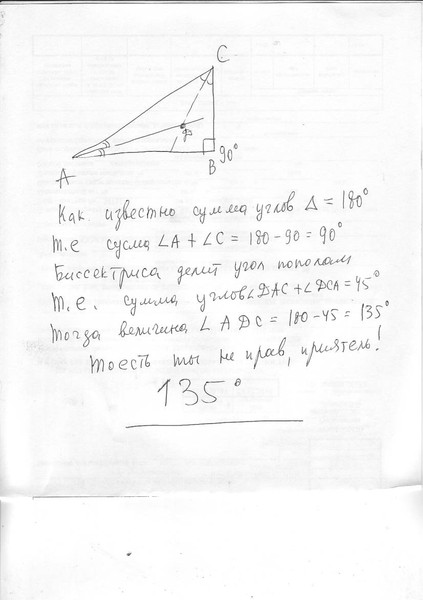 C
A
B
90°
D
Как известно сумма углов Δ = 180°
Т.е сусма ∠A + ∠C = 180 - 90 = 90°
Биссектриса делит угол пополам
Т.е. сумма углов ∠DAC + ∠DCA = 45°
Тогда величина ∠ADC = 180 - 45 = 135°
Тоесть ты не прав, приятель!
135°